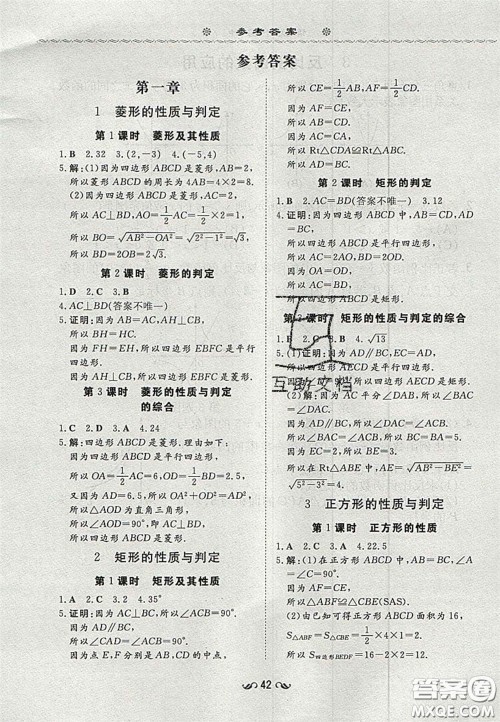 参考答案
参考答案
第一章
1 菱形的性质与判定
第1课时 菱形及其性质
1.B 2.32 3.(2,-3) 4.(-5,4)
5.解:(1)因为四边形ABCD是菱形,AB=2,
所以菱形ABCD的周长为4AB=4×2=8.
(2)因为四边形ABCD是菱形,
所以AC⊥BD,OA=1/2AC=1/2×2=1.
所以BO=√(AB²-OA²)=√(2²-1²)=√3.
所以BD=2OB=2√3.
第2课时 菱形的判定
1.B 2.C 3.B
4.AC⊥BD(答案不唯一)
5.证明:因为AB=AC,AH⊥CB,
所以BH=HC.
因为FH=EH,所以四边形EBFC是平行四边形.
又因为AH⊥CB,所以四边形EBFC是菱形.
第3课时 菱形的性质与判定
的综合
1.B 2.C 3.6 4.24
5.解:四边形ABCD是菱形.理由如下:
因为四边形ABCD是平行四边形,
所以OA=1/2AC=6,OD=1/2BD=2.5.
又因为AD=6.5,所以OA²+OD²=AD².
所以△AOD为直角三角形.
所以∠AOD=90°.
所以四边形ABCD是菱形.
2 矩形的性质与判定
第1课时 矩形及其性质
1.A 2.D 3.2 4.35°
5.证明:因为AC⊥BC,所以∠ACB=90°.
因为AD∥BC,
所以∠CAD=∠ACB=90°.
因为点E,F分别是AB,CD的中点,
所以CE=1/2AB,AF=1/2CD.
因为AF=CE,
所以AB=CD.
因为AC=CA,
所以Rt△CDA≌Rt△ABC.
所以AD=BC.
第2课时 矩形的判定
1.D 2.AC=BD(答案不唯一) 3.12
4.证明:因为四边形ABCD中,AB=CD,BC=AD,
所以四边形ABCD是平行四边形.
因为OA=OD,
所以AC=BD.
所以四边形ABCD是矩形.
课时 矩形的性质与判定的综合
1.B 2.C 4.√13
5.(1)证明:因为AD∥BC,EC=AD,
所以四边形AECD是平行四边形.
又因为∠D=90°,所以四边形AECD是矩形.
(2)解:因为AC平分∠DAB,所以∠BAC=∠DAC.
因为AD∥BC,所以∠DAC=∠ACB.
所以∠BAC=∠ACB.所以BA=BC=5.
所以在Rt△ABE中,AE=√(AB²-BE²)=
√(5²-3²)=4.
3 正方形的性质与判定
第1课时 正方形的性质
1.A 2.B 3.C 4.22.5
5.解:(1)在正方形ABCD中,AB=BC,AD=CD.
因为BD=BD,
所以△ABD≌△CBD(SAS).
(2)由已知可得正方形ABCD面积为16,
互助文档
42
答案圈
MXQE.COM